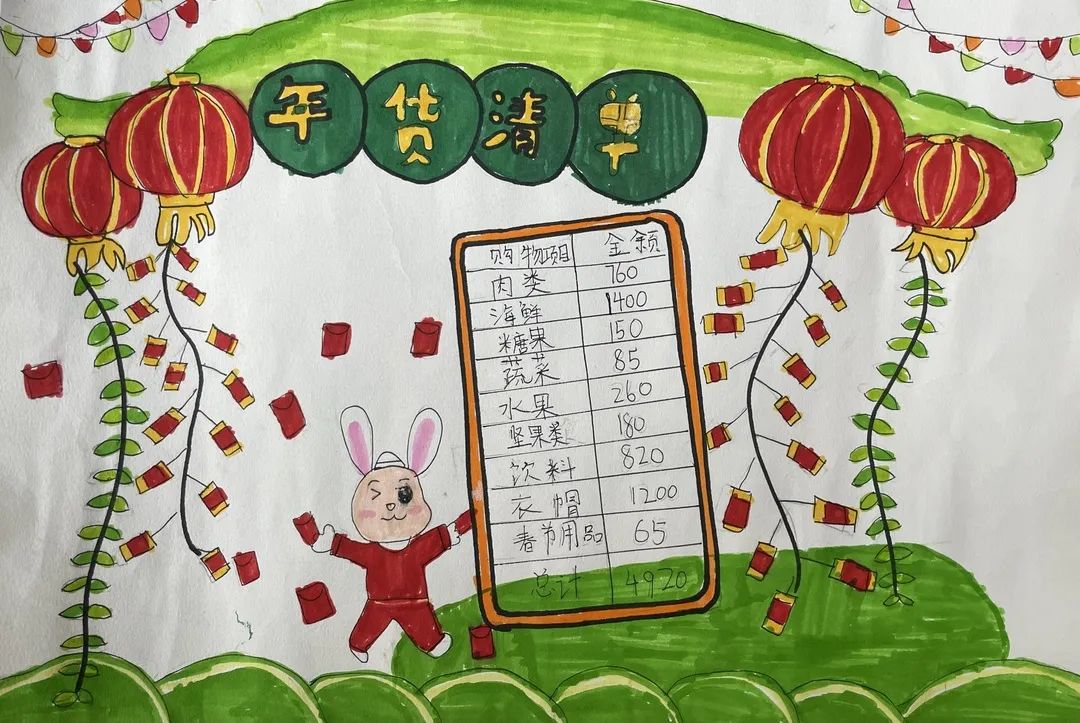 年货清单
购物项目 金额
肉类 760
海鲜 1400
糖果 150
蔬菜 85
水果 260
坚果类 180
饮料 820
衣帽 1200
春节用品 65
总计 4920